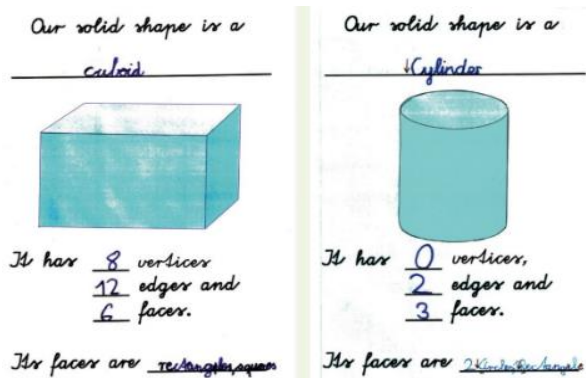 Our solid shape is a
cuboid
It has 8 vertices
12 edges and
6 faces.
Its faces are rectangles, squares
Our solid shape is a
Cylinder
It has 0 vertices,
2 edges and
3 faces.
Its faces are 2 Circles, Rectangle